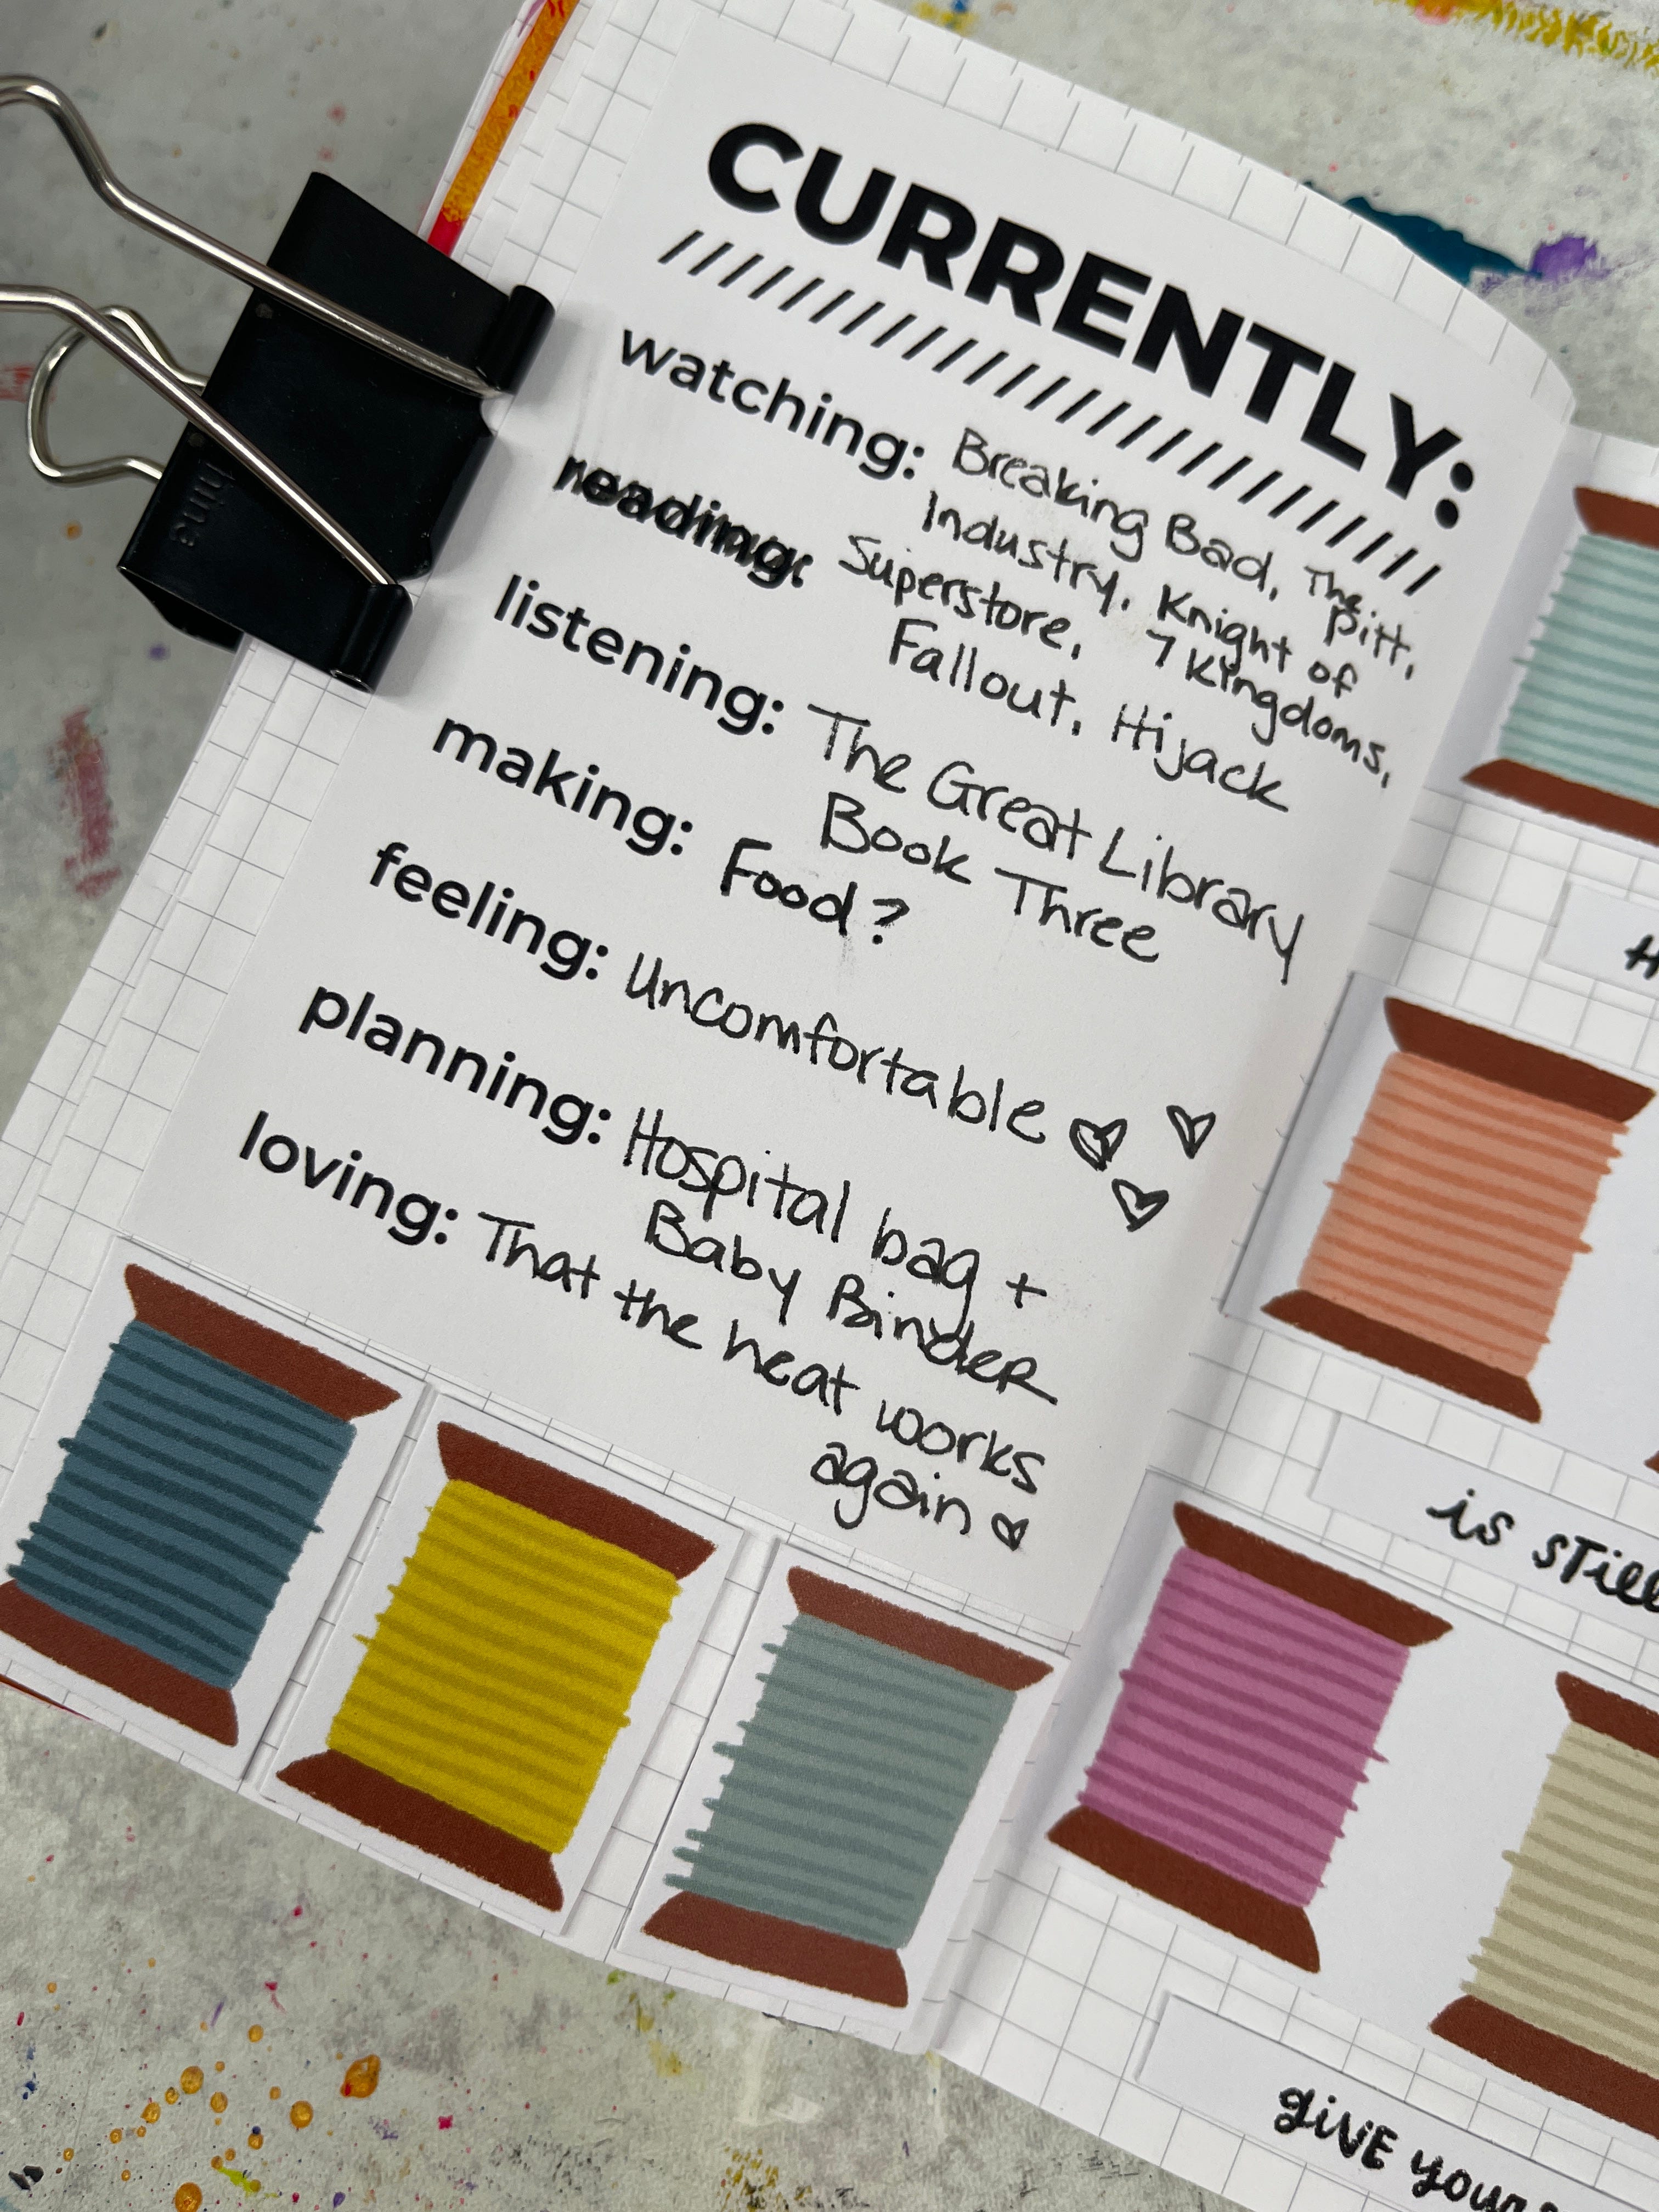 CURRENTLY:
watching: Breaking Bad, The Pitt,
Industry, Knight of
7 Kingdoms,
reading: Superstore,
Fallout, Hijack
listening: The Great Library
Book Three
making: Food?
feeling: Uncomfortable
planning: Hospital bag +
Baby Binder
loving: That the heat works
again
is still
give your